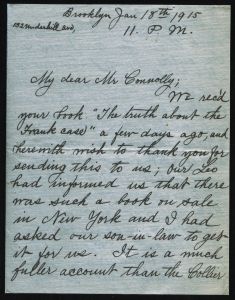 Brooklyn Jan 18th 1915
152 Underhill Ave,
11. P. M.
My dear Mr Connolly;
We rec'd
your book "The truth about the
Frank case" a few days ago, and
herewith wish to thank you for
sending this to us; our Leo
had informed us that there
was such a book on sale
in New York and I had
asked our son-in-law to get
it for us. It is a much
fuller account than the Collier